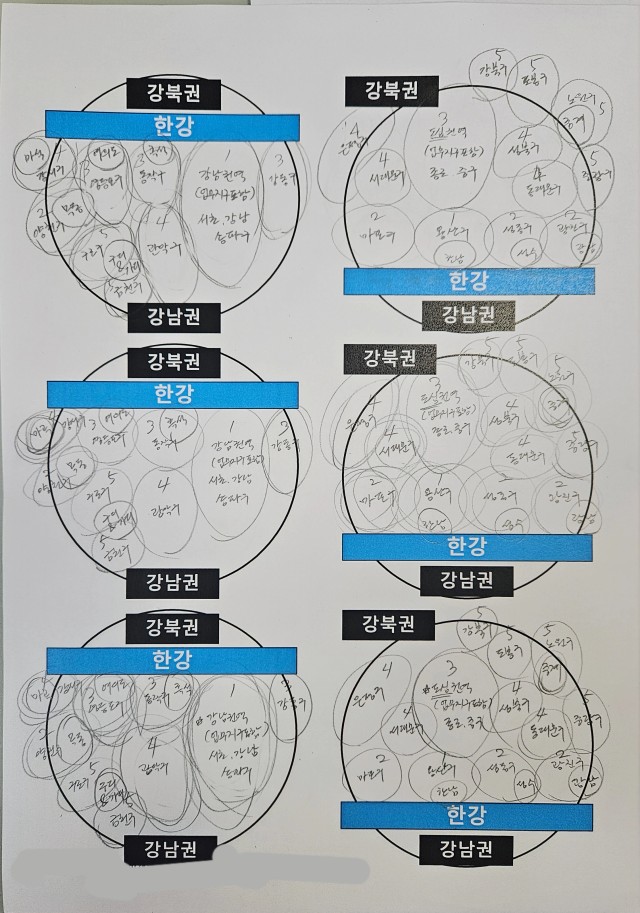 강북권
한강
마곡
4
강서구
3
여의도
영등포구
3
흑석
동작구
1
강남권역
(업무지구포함)
서초.강남
송파구
3
강동구
2
목동
양천구
5
구로구
4
관악구
5
금천구
강남권
강북권
5
강북구
5
도봉구
노원구
5
중계
4
은평구
3
도심권역
(업무지구포함)
종로.중구
4
성북구
4
서대문구
4
동대문구
5
중랑구
2
마포구
1
용산구
한남
2
성동구
성수
2
광진구
광남
한강
강남권
강북권
한강
4
강서구
3
여의도
영등포구
3
흑석
동작구
1
강남권역
(업무지구포함)
서초.강남
송파구
3
강동구
2
목동
양천구
5
구로구
4
관악구
5
금천구
강남권
강북권
5
강북구
5
도봉구
5
노원구
4
은평구
3
도심권역
(업무지구포함)
종로.중구
4
성북구
4
서대문구
4
동대문구
중랑구
2
마포구
1
용산구
한남
2
성동구
성수
2
광진구
광남
한강
강남권
강북권
한강
3
여의도
영등포구
3
동작구
흑석
1
강남권역
(업무지구포함)
서초.강남
송파구
3
강동구
2
양천구
목동
5
구로구
4
관악구
5
금천구
강남권
강북권
5
강북구
5
도봉구
5
노원구
중계
4
은평구
3
도심권역
(업무지구포함)
종로.중구
4
성북구
4
서대문구
4
동대문구
중랑구
2
마포구
1
용산구
한남
2
성동구
성수
2
광진구
광남
한강
강남권